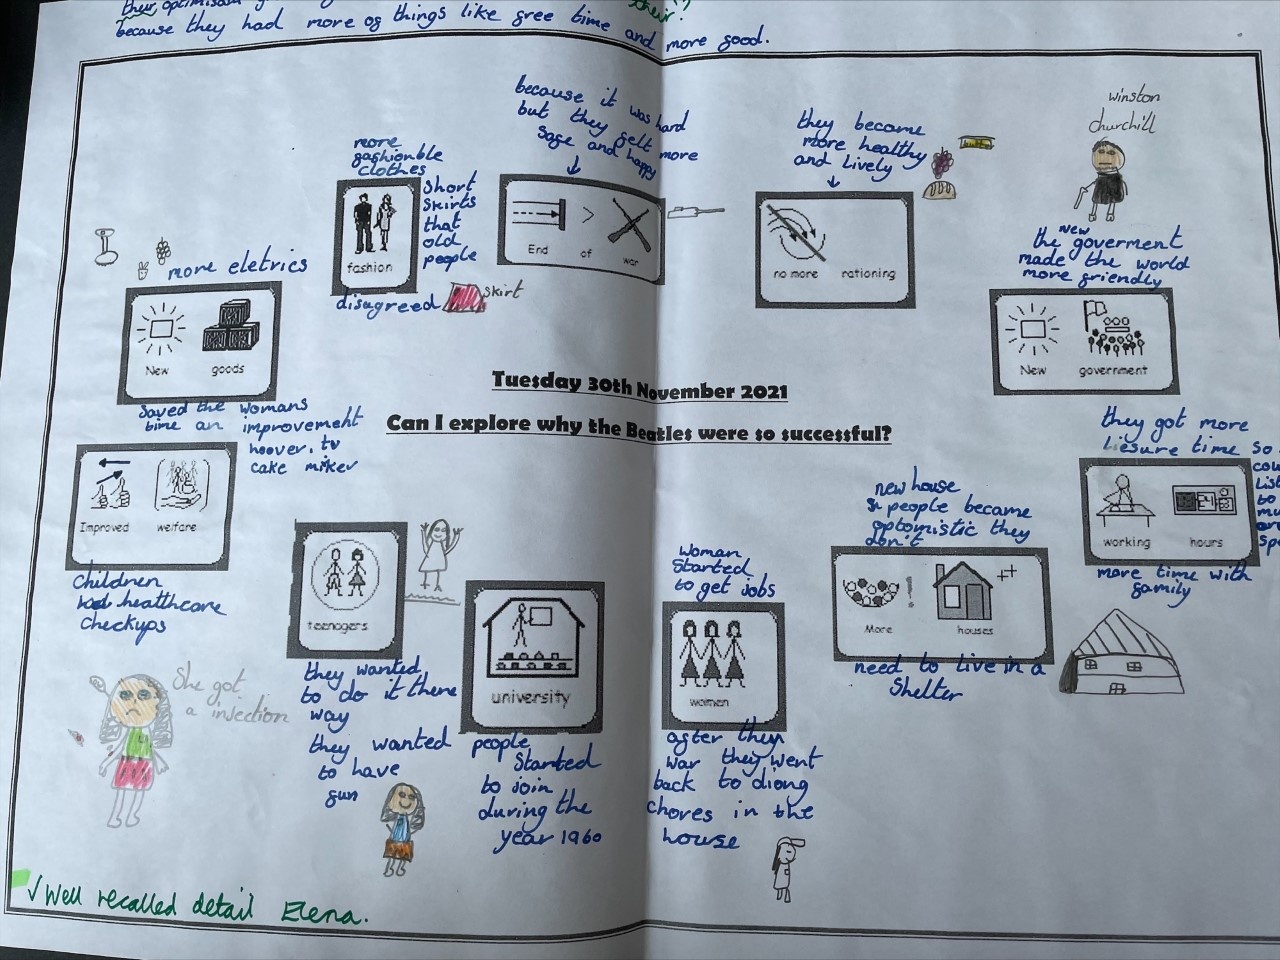 their optimism
their?
because they had more of things like free time and more good.
because it was hard
but they felt
safe and happy more
they became
more healthy
and lively
winston
churchill
more
fashionble
clothes
short
skirts
that
old
people
fashion
disagreed
skirt
End of war
no more rationing
the new goverment
made the world
more friendly
more eletrics
New goods
New government
Tuesday 30th November 2021
Can I explore why the Beatles were so successful?
saved the womans
time an improvement
hoover, tv
cake mixer
Improved welfare
children
healthcare
checkups
She got
a injection
teenagers
they wanted
to do it there
way
they wanted
to have
fun
university
people
Started
to join
during the
year 1960
woman
Started
to get jobs
women
after they
war they went
back to diong
chores in the
house
new house
people became
optomistic they
don't
More ! houses ++
need to live in a
Shelter
they got more
liesure time so
List
to
mu
working hours
more time with
family
✓ Well recalled detail Elena.